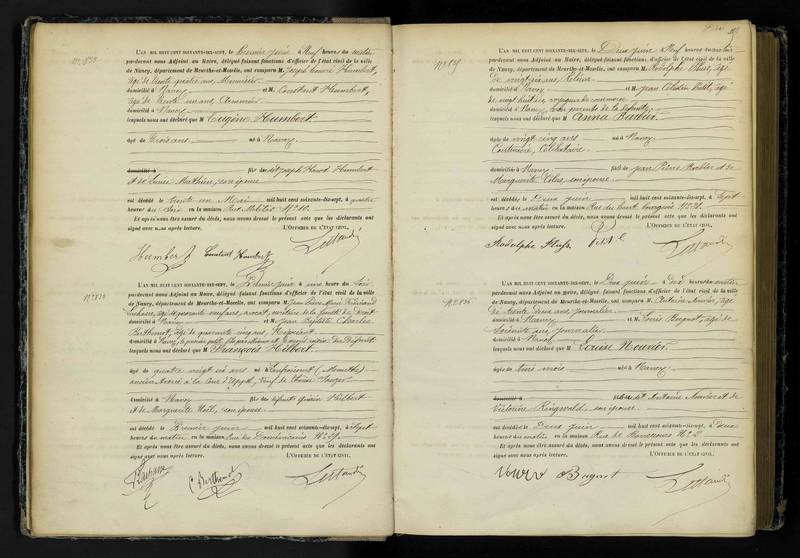 L'AN MIL HUIT CENT SOIXANTE-DIX-SEPT, le Premier juin à Neuf heures du matin
pardevant nous Adjoint au Maire, délégué faisant fonctions d'officier de l'état civil de la ville
de Nancy, département de Meurthe-et-Moselle, ont comparu M Joseph Humbert,
âgé de trente quatre ans, Menuisier
domicilié à Nancy et M. Constant Humbert,
âgé de trente un ans
domicilié à Nancy
lesquels nous ont déclaré que M Eugène Humbert
âgé de Trois ans né à Nancy
domicilié à fils de dit Joseph Humbert
et de Marie son épouse
est décédé le trente un Mai mil huit cent soixante-dix-sept, à quatre
heures du Soir en la maison Rue N° 10.
Et après nous être assuré du décès, nous avons dressé le présent acte que les déclarants ont
signé avec nous après lecture. L'OFFICIER DE L'ÉTAT CIVIL,
Humbert Constant Humbert
L'AN MIL HUIT CENT SOIXANTE-DIX-SEPT, le Premier juin à une heure du Soir
pardevant nous Adjoint au Maire, délégué faisant fonctions d'officier de l'état civil de la ville
de Nancy, département de Meurthe-et-Moselle, ont comparu M. Jean Pierre Marie Ferdinand
âgé de quarante neuf ans, avocat, de la faculté de Droit
domicilié à Nancy et M. Jean Baptiste Charles
Berthenot, âgé de quarante cinq ans, Négociant
domicilié à Nancy, le premier petit fils par alliance et le second voisin du Défunt
lesquels nous ont déclaré que M François Hilbert.
âgé de quatre vingt six ans né à (Meurthe)
ancien Avoué à la Cour d'Appel, veuf de Thérèse
domicilié à Nancy fils des défunts Hilbert
et de Marguerite Noël, son épouse.
est décédé le Premier juin mil huit cent soixante-dix-sept, à Sept
heures du matin en la maison Rue des Dominicains N° 29.
Et après nous être assuré du décès, nous avons dressé le présent acte que les déclarants ont
signé avec nous après lecture. L'OFFICIER DE L'ÉTAT CIVIL,
L'AN MIL HUIT CENT SOIXANTE-DIX-SEPT, le Deux juin à Neuf heures du matin
pardevant nous Adjoint au Maire, délégué faisant fonctions d'officier de l'état civil de la ville
de Nancy, département de Meurthe-et-Moselle, ont comparu M. Rodolphe âgé
de vingt six ans Relieur
domicilié à Nancy et M. Jean Célestin Petit, âgé
de vingt huit ans voyageur de commerce
domicilié à Nancy, non parents de la défunte
lesquels nous ont déclaré que M Anna Barbier.
âgée de vingt cinq ans née à Nancy
Couturière, Célibataire.
domiciliée à Nancy fille de Jean Pierre Barbier et de
Marguerite son épouse.
est décédée le Deux juin mil huit cent soixante-dix-sept, à Sept
heures du matin en la maison Rue du Haut Bourgeois N° 31.
Et après nous être assuré du décès, nous avons dressé le présent acte que les déclarants ont
signé avec nous après lecture. L'OFFICIER DE L'ÉTAT CIVIL,
Rodolphe Petit C.
L'AN MIL HUIT CENT SOIXANTE-DIX-SEPT, le Deux juin à Dix heures du matin
pardevant nous Adjoint au Maire, délégué faisant fonctions d'officier de l'état civil de la ville
de Nancy, département de Meurthe-et-Moselle, ont comparu M. Antoine Nouvier, âgé
de trente deux ans, journalier
domicilié à Nancy et M. Louis Bugnot, âgé de
soixante ans journalier
domicilié à Nancy
lesquels nous ont déclaré que M Louise Nouvier.
âgée de trois mois née à Nancy
domiciliée à fille de dit Antoine Nouvier et de
Victorine Ringwald, son épouse.
est décédée le Deux juin mil huit cent soixante-dix-sept, à Deux
heures du matin en la maison Rue de N° 2.
Et après nous être assuré du décès, nous avons dressé le présent acte que les déclarants ont
signé avec nous après lecture. L'OFFICIER DE L'ÉTAT CIVIL,
Bugnot